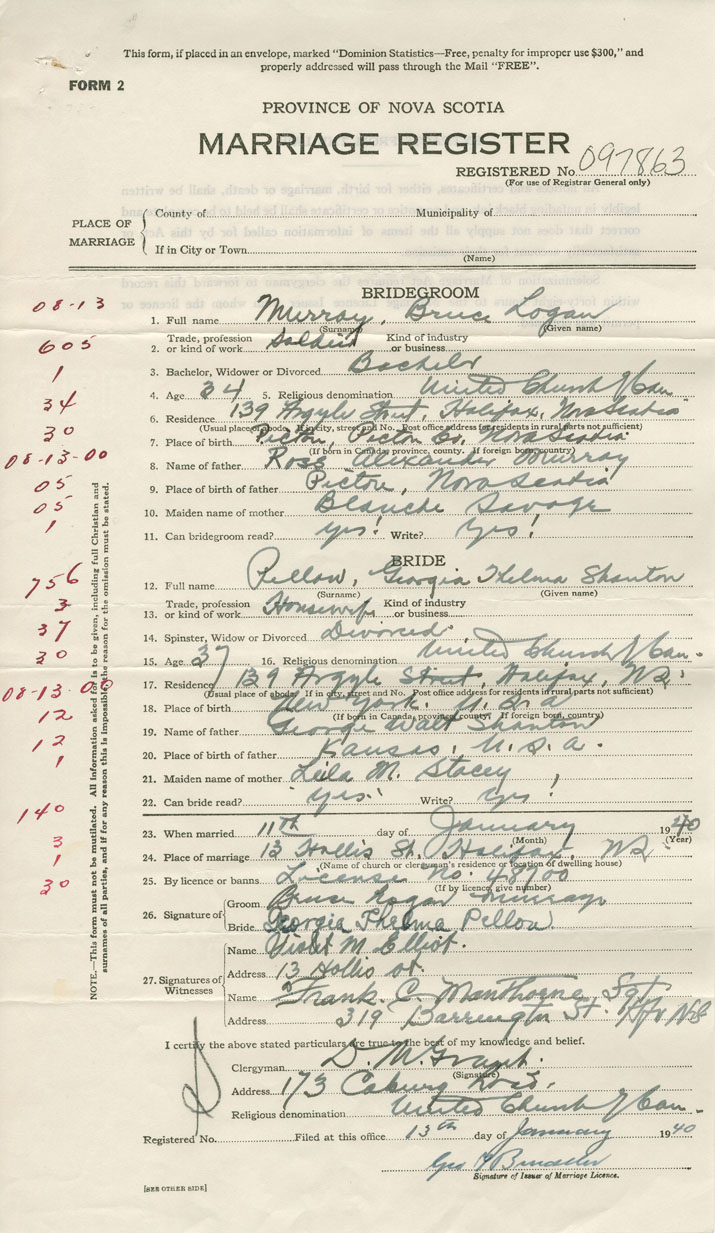 This form, if placed in an envelope, marked "Dominion Statistics—Free, penalty for improper use $300," and
properly addressed will pass through the Mail "FREE".
FORM 2
PROVINCE OF NOVA SCOTIA
MARRIAGE REGISTER
REGISTERED No. 097863
(For use of Registrar General only)
PLACE OF MARRIAGE
County of Municipality of
If in City or Town
(Name)
BRIDEGROOM
08-13
1. Full name Murray, Bruce Logan
(Surname) (Given name)
605
2. Trade, profession or kind of work Soldier Kind of industry or business
1
3. Bachelor, Widower or Divorced Bachelor
34
4. Age 34 5. Religious denomination United Church of Can
30
6. Residence 139 Argyle Street, Halifax, Nova Scotia
(Usual place of abode. If in city, street and No. Post office address for residents in rural parts not sufficient)
08-13-00
7. Place of birth Pictou, Pictou Co, Nova Scotia
(If born in Canada, province, county. If foreign born, country)
05
8. Name of father Ross Alexander Murray
05
9. Place of birth of father Pictou, Nova Scotia
1
10. Maiden name of mother Blanche Savage
11. Can bridegroom read? yes! Write? Yes!
BRIDE
756
12. Full name Pellow, Georgia Thelma Shanton
(Surname) (Given name)
3
13. Trade, profession or kind of work Housewife Kind of industry or business
37
14. Spinster, Widow or Divorced Divorced
30
15. Age 37 16. Religious denomination United Church of Can.
08-13-00
17. Residence 139 Argyle Street, Halifax, NS
(Usual place of abode. If in city, street and No. Post office address for residents in rural parts not sufficient)
12
18. Place of birth New York. U.S.A
(If born in Canada, province, county. If foreign born, country)
12
19. Name of father George Walt Shanton
1
20. Place of birth of father Kansas, U.S.A.
21. Maiden name of mother Leila M. Stacey
22. Can bride read? yes! Write? yes!
140
23. When married 11th day of January 1940
(Month) (Year)
3
24. Place of marriage 13 Hollis St, Halifax, NS
(Name of church or clergyman's residence or location of dwelling house)
1
25. By licence or banns License No. 48700
(If by licence, give number)
30
26. Signature of
Groom Bruce Logan Murray
Bride Georgia Thelma Pellow
27. Signatures of Witnesses
Name Violet M. Elliot.
Address 13 Hollis St.
Name Frank. C. Manthorne Sgt
Address 319 Barrington St. Hfx NS
NOTE.—This form must not be mutilated. All information asked for is to be given, including full Christian and
surnames of all parties, and if for any reason this is impossible the reason for the omission must be stated.
I certify the above stated particulars are true to the best of my knowledge and belief.
Clergyman D. M. Grant.
(Signature)
Address 173 Coburg Road,
Religious denomination United Church of Can.
Registered No. Filed at this office 13th day of January 1940
Geo
Signature of Issuer of Marriage Licence.
[SEE OTHER SIDE]